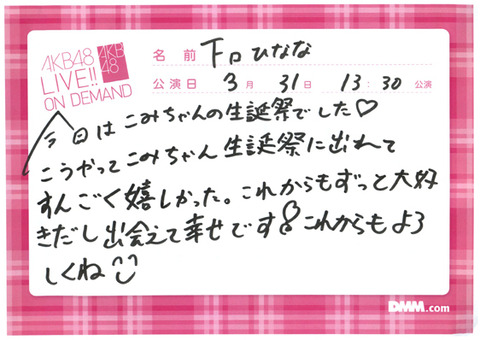 AKB48
LIVE!!
ON DEMAND
AKB
48
名前 下口ひなな
公演日 3月31日 13:30公演
今日はこみちゃんの生誕祭でした♡
こうやってこみちゃん生誕祭に出れて
すんごく嬉しかった。これからもずっと大好
きだし出会えて幸せです これからもよろ
しくね
DMM.com